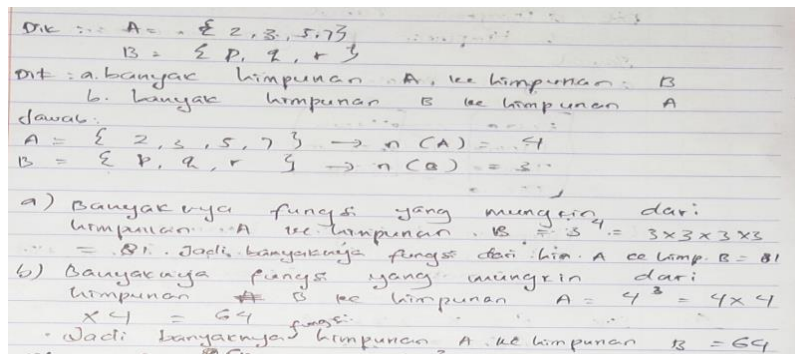 Dik : A = { 2, 3, 5, 7}
B = { p, q, r }
Dit : a. banyak himpunan A ke himpunan B
b. banyak himpunan B ke himpunan A
Jawab :
A = { 2, 3, 5, 7 } → n (A) = 4
B = { p, q, r } → n (B) = 3
a) Banyaknya fungsi yang mungkin dari
himpunan A ke himpunan B = 3⁴ = 3x3x3x3
= 81. Jadi, banyaknya fungsi dari him. A ke himp. B = 81
b) Banyaknya fungsi yang mungkin dari
himpunan B ke himpunan A = 4³ = 4x4
x4 = 64
Jadi banyaknya fungsi himpunan A ke himpunan B = 64